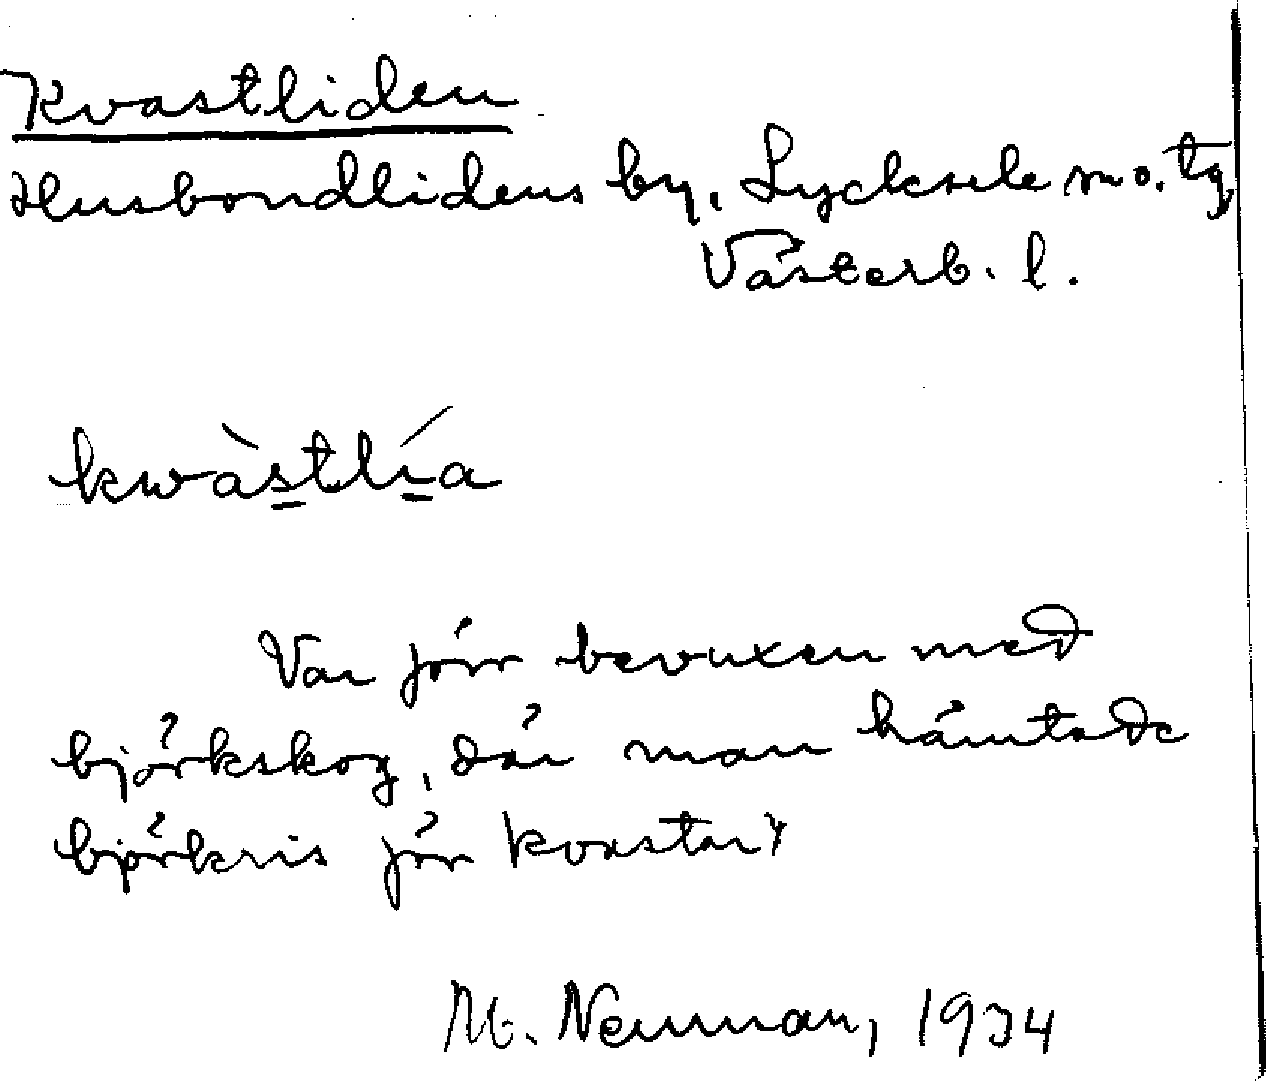 Kvastliden
Husbondlidens by, Lycksele mo. tg,
Västerb. l.
kwàstlía
Var förr bevuxen med
björkskog, där man hämtade
björkris för kvastar.
M. Neuman, 1934